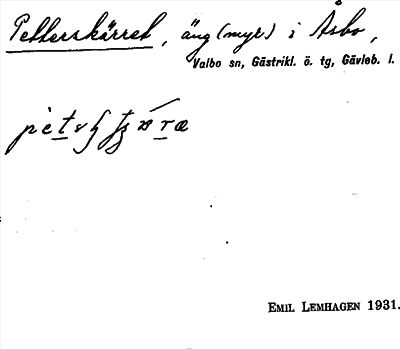 Petterskärret, äng (myr) i Åsbo,
Valbo sn, Gästrikl. ö. tg, Gävleb. l.
EMIL LEMHAGEN 1931.